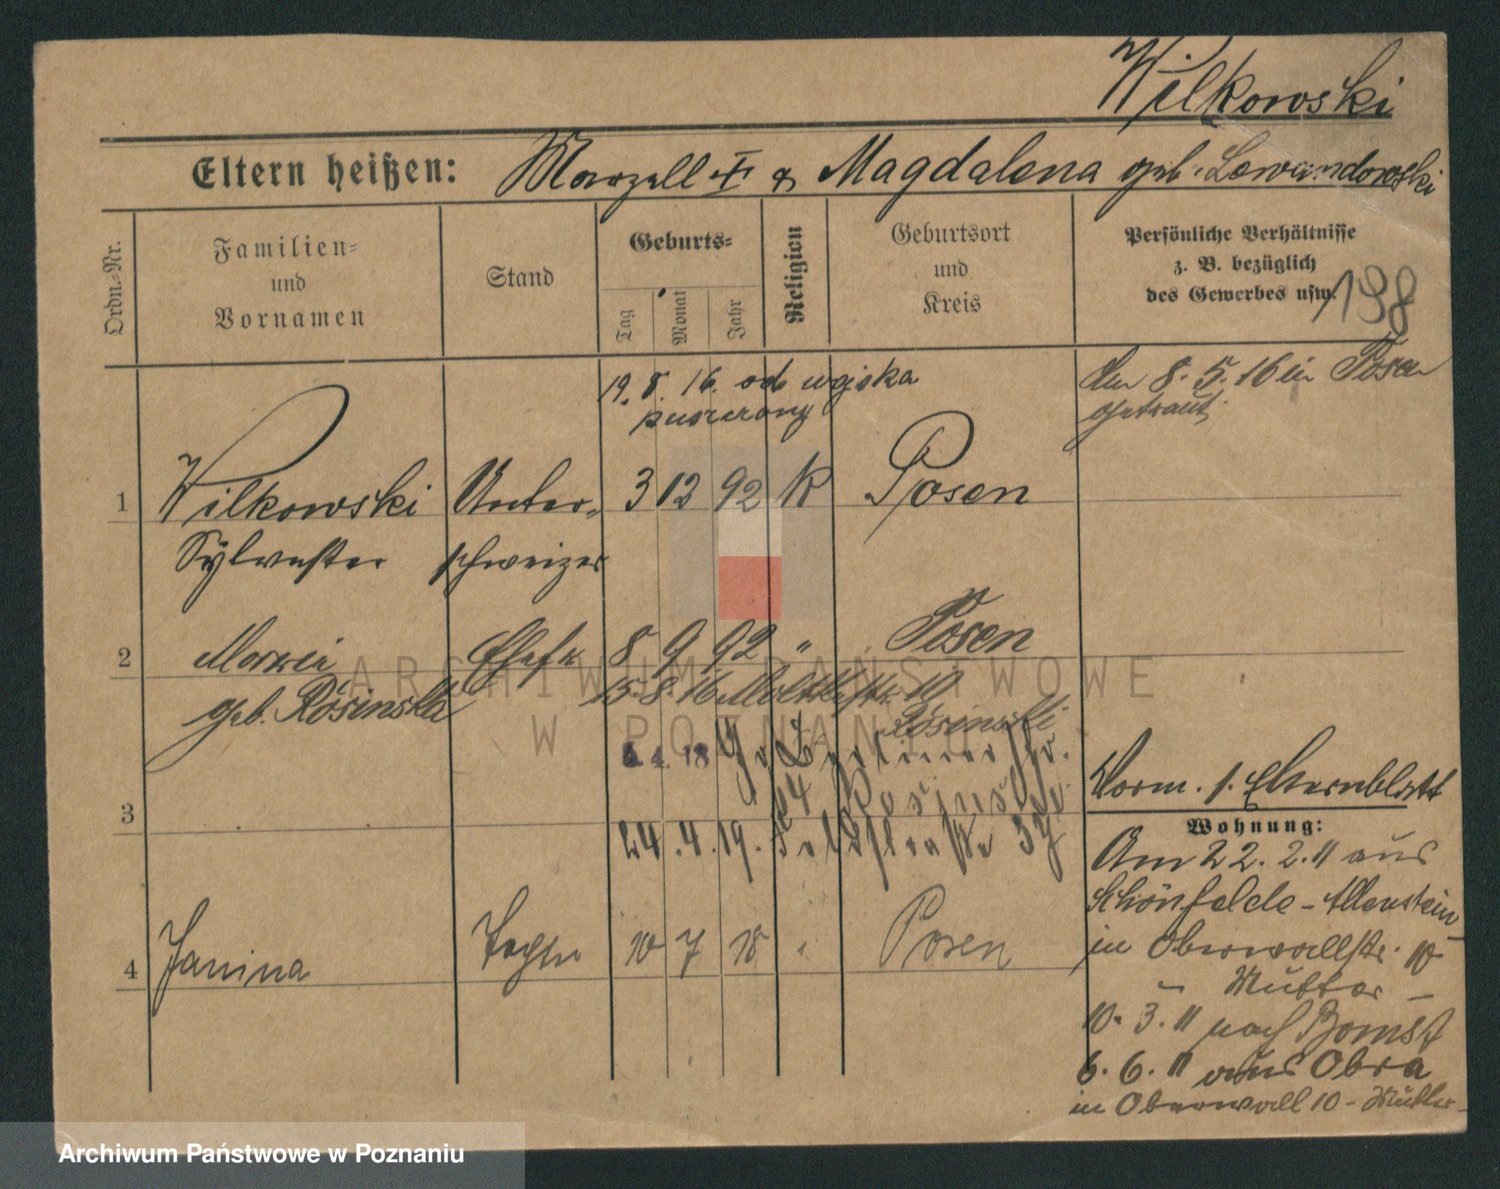 Wilkowski
Eltern heißen: Marzell † & Magdalena geb. Lewandowski
Ordn.-Nr.
Familien- und Vornamen
Stand
Geburts-
Tag
Monat
Jahr
Religion
Geburtsort und Kreis
Persönliche Verhältnisse
z. B. bezüglich
des Gewerbes usw.
198
19. 8. 16. od wojska
Am 8. 5. 16 in Posen
getraut.
1 Wilkowski Unter- 3 12 92 K Posen
Sylvester schweizer
2 Ehefr 8 9 92 " Posen
geb. Rösinska
15. 8. 16 Moltkestr. 10
Rösinski
4. 18 Gr. Berlinerstr.
Vorm. s. Elternblatt
3
24. 4. 19. Feldstraße
Wohnung:
Am 22. 2. 11 aus
Schönfelde - Allenstein
in Oberwallstr. 10
- Mutter -
4 Janina Tochter 10 7 18 " Posen
10. 3. 11 nach Bomst
6. 6. 11 aus Obra
in Oberwall 10 - Mutter -
ARCHIWUM PAŃSTWOWE
W POZNANIU
Archiwum Państwowe w Poznaniu